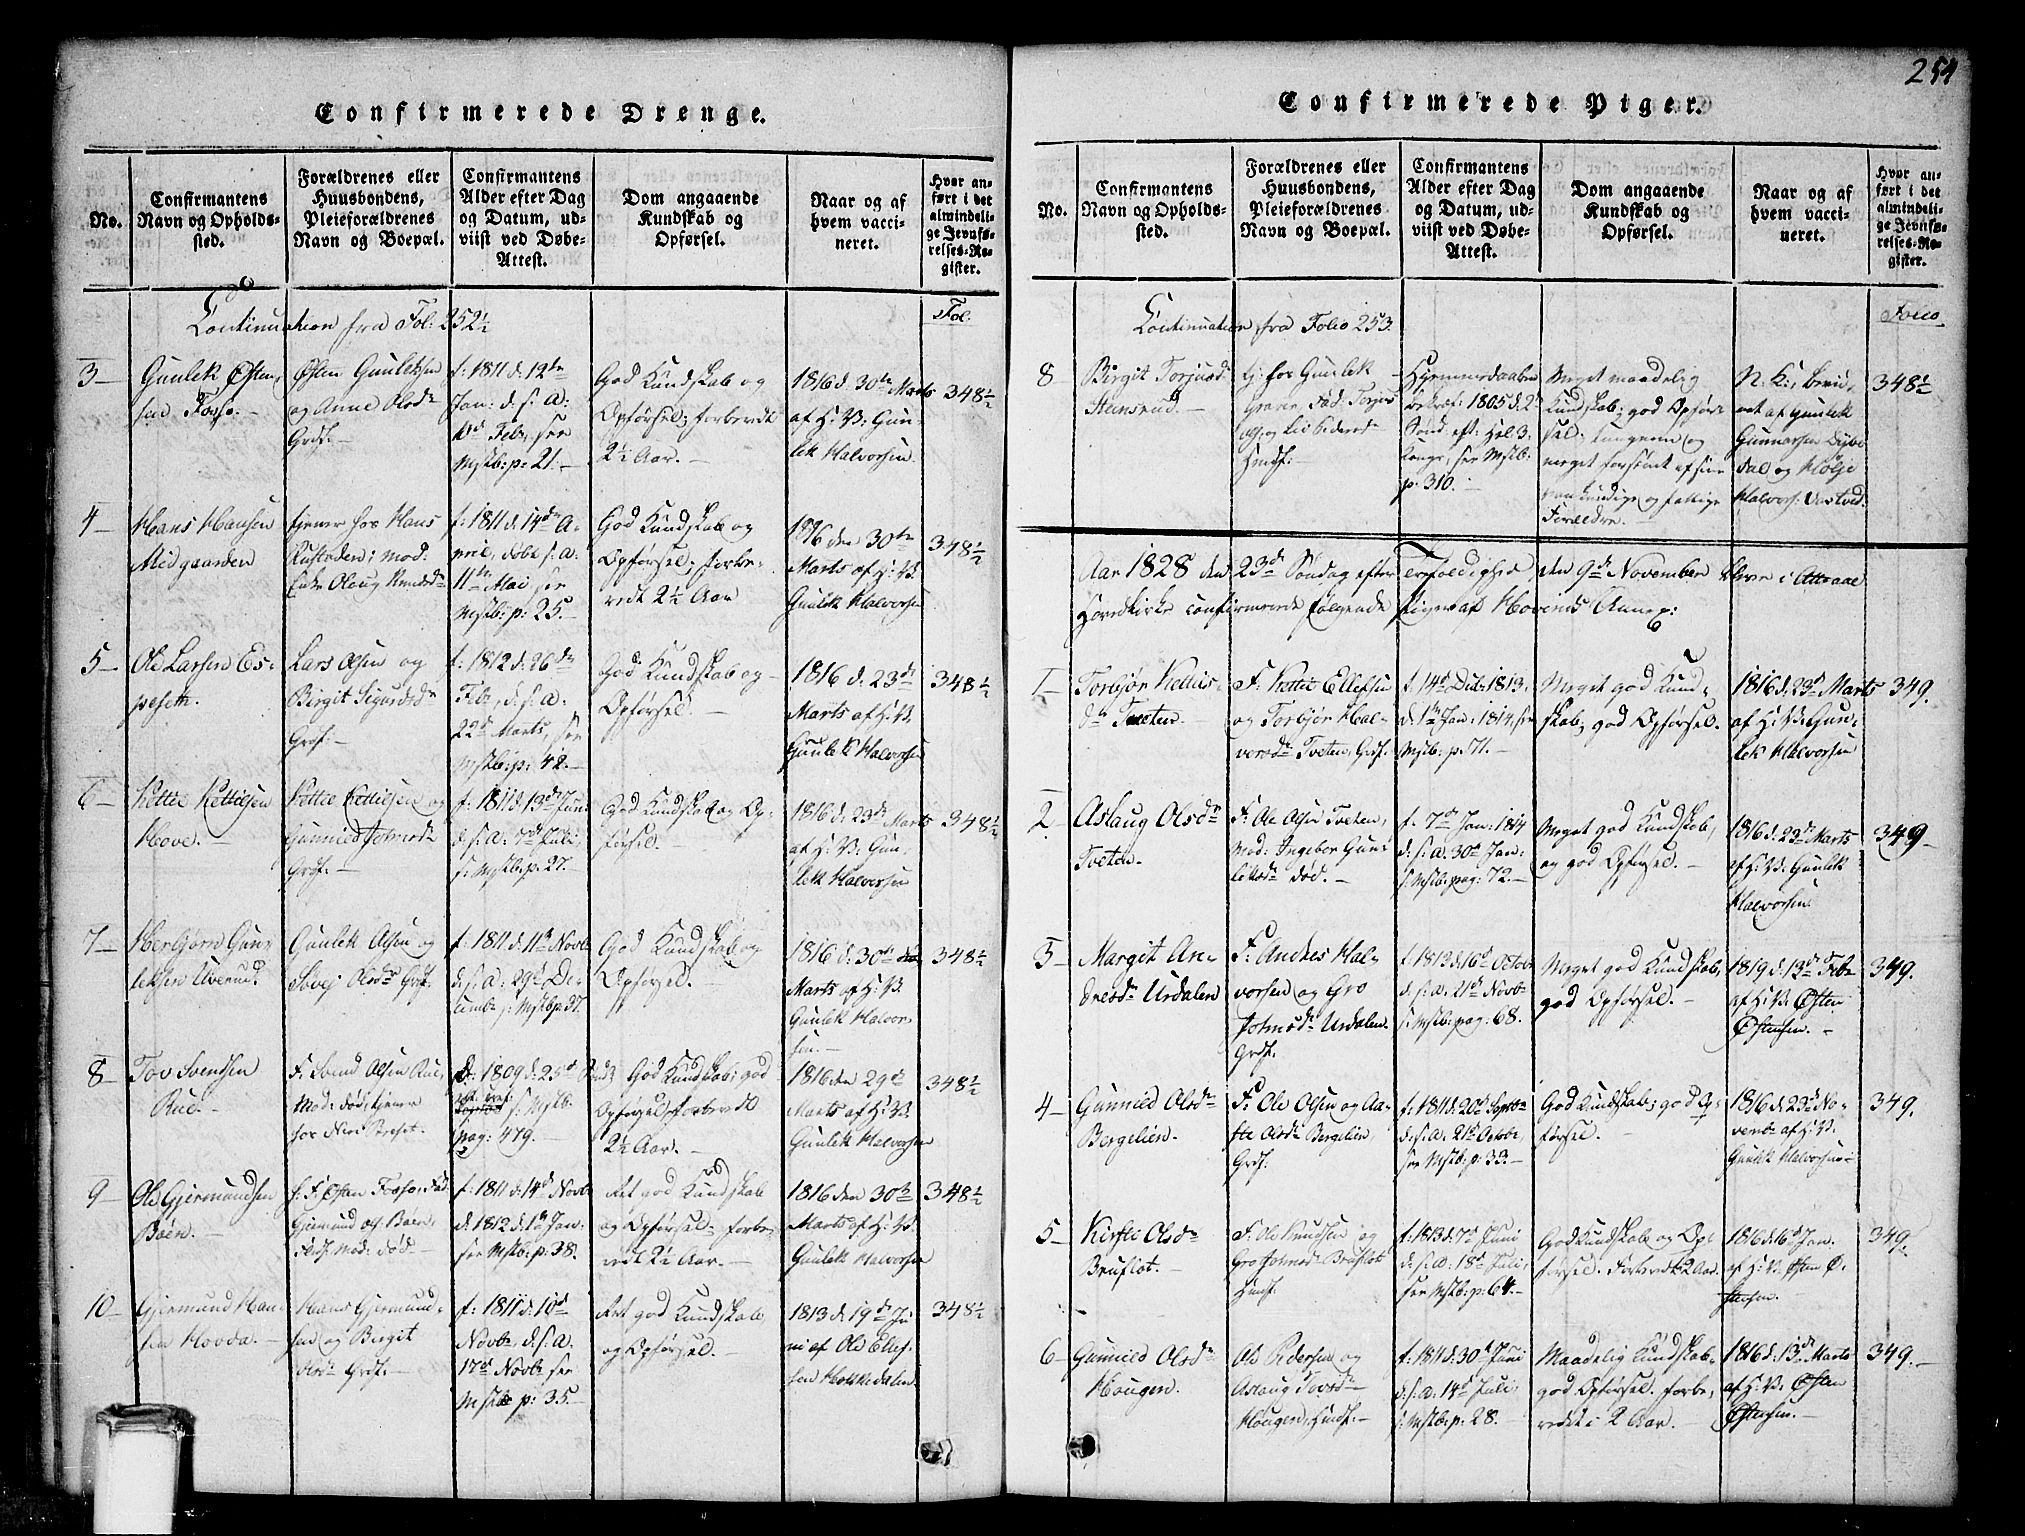 254
Confirmerede Drenge.
No.
Confirmantens
Navn og Opholds-
sted.
Forældrenes eller
Huusbondens,
Pleieforældrenes
Navn og Boepæl.
Confirmantens
Alder efter Dag
og Datum, ud-
viist ved Døbe-
Attest.
Dom angaaende
Kundskab og
Opførsel.
Naar og af
hvem vacci-
neret.
Hvor an-
ført i det
almindeli-
ge Jevnfø-
relses-Re-
gister.
Continuation fra Fol: 252½
Fol.
3
Gunlek Østen-
sen Fosso.
Østen Gunleksen
og Anne Olsdr
Grdf.
f: 1811 d. 12te
Jan: d. s. a:
Febr, ser
Mstb: p: 21.
God Kundskab og
Opførsel; forberedt
2½ Aar.
1816 d. 30te Marts
af H: V: Gun-
lek Halvorsen.
348½
4
Hans Hansen
Midgaarden
tjener hos Hans
Rustaden; Mod:
Enke Oloug Knudsdr
f: 1811 d. 14de A-
pril, døbt s. a:
11te Mai ser
Mstb: p: 25.
God Kundskab og
Opførsel, forbe-
redt 2½ Aar
1816 den 30te
Marts af H: V:
Gunlek Halvorsen
348½
5
Ole Larsen Es-
peseth.
Lars Olsen og
Birgit Sigurdsdr
Grdf:
f: 1812 d. 26de
Febr, d. s. a.
22de Marts, ser
Mstb: p: 42.
God Kundskab og
Opførsel.
1816 d. 23de
Marts af H: V:
Gunlek Halvorsen
348½
6
Kettil Kettilsen
Hove.
Kettil Kettilsen og
Gunnild
Grdf.
f: 1811 d. 13de Juni
d. s. a. 7de Juli,
s: Mstb: p: 27.
God Kundskab og Op-
førsel.
1816 d. 23de Marts
af H: V: Gun-
lek Halvorsen
348½
7
Herbjørn Gun-
leksen Uverud.
Gunlek Olsen og
Sövej Olsdr Grdf.
f: 1811 d. 11te Novbr
d. s. a. 29de De-
cembr s: Mstb p 37.
God Kundskab og
Opførsel.
1816 d. 30te
Marts af H: V:
Gunlek Halvor-
sen.
348½
8
Tov Svendsen
Rue.
F. Svend Olsen Rue,
Mod: død; tjener
hos Breset.
1809 d. 25de
s: Mstb:
pag: 479.
God Kundskab; god
Opførsel; forberedt
2½ Aar.
1816 den 29de
Marts af H: V:
Gunlek Halvorsen
348½
9
Ole Gjermundsen
Böen.
h. F. Østen Fosso, Fad:
Gjermund Böen,
Mod: død
f: 1811 d. 14de Novbr
d. 1812 d. 1te Jan:
ser Mstb: p: 38.
Ret god Kundskab
og Opførsel forbe-
redt 2½ Aar.
1816 den 30te
Marts af H: V:
Gunlek Halvorsen
348½
10
Gjermund Han-
sen Hovda.
Hans Gjermund-
sen og Birgit
Olsdr Grdf.
f: 1811 d. 10de
Novbr, d. s. a.
17de Novbr ser
Mstb: p: 35.
Ret god Kundskab,
og Opførsel.
1813 d. 19de Ju-
ni af Ole Ellef-
sen Hokkedalen
348½
Confirmerede Piger.
No.
Confirmantens
Navn og Opholds-
sted.
Forældrenes eller
Huusbondens,
Pleieforældrenes
Navn og Boepæl.
Confirmantens
Alder efter Dag
og Datum, ud-
viist ved Døbe-
Attest.
Dom angaaende
Kundskab og
Opførsel.
Naar og af
hvem vacci-
neret.
Hvor an-
ført i det
almindeli-
ge Jevnfø-
relses-Re-
gister.
Continuation fra Folio 253.
Folio
8
Birgit Torjusd:
Steinsrud.
tj. hos Gunlek
Graver, Fad: Torjus
og Liv Pedersdr
Huusf:
1805 d. 2den
Sönd: eft: Hel: 3
Konge, ser Mstb:
p: 310.
Meget maadelig
Kundskab; god Opför-
sel; tungnem og
meget forsömt af sine
ukyndige og fattige
Forældre.
N. K., bevid-
net af Gunlek
Gunnarsen
dal og Kölje
Halvors:
348½
Aar 1828 den 23de Søndag efter Trefoldighed, den 9de November bleve i Attraae
Hovedkirke confirmerede følgende Piger af Hovinds Annex:
1
Torbjør Kettils-
dr Tveten.
F: Kettil Ellefsen
og Torbjør Hal-
vorsdr Tveten, Grdf.
f: 14de Dcbr 1813,
d. 1te Jan: 1814, ser
Mstb: p. 71.
Meget god Kund-
skab; god Opførsel.
1816 d. 23de Marts
af H: V: Gun-
lek Halvorsen
349.
2
Aslaug Olsdr
Tveten.
F: Ole Olsen Tveten,
Mod: Ingebor Gun-
leksdr død.
f. 7de Jan: 1814
d. s. a. 30te Jan:
s: Mstb: pag: 72.
Meget god Kundskab,
og god Opførsel.
1816 d. 23de Marts
af H: V: Gunlek
Halvorsen
349
3
Margit An-
dresdr Urdalen
F: Andres Hal-
vorsen og Gro
Urdalen.
Grdf.
f: 1813 d. 16de Octobr
d. s. a. 21de Novbr
s: Mstb: pag: 68.
Meget god Kundskab,
god Opførsel.
1819 d. 13de Febr
af H: V: Østen
Østensen.
349.
4
Gunnild Olsdr
Bergelien.
F: Ole Olsen og Aa-
ste Olsdr Bergelien,
Grdf.
f: 1811 d. 20de Septbr
d. s. a. 21de Octobr,
ser Mstb: p: 33.
God Kundskab; god Op-
førsel.
1816 d. 23de No-
vembr af H: V:
Gunlek Halvorsen
349.
5
Kirsti Olsdr
Bruflot.
F: Ole Knudsen og
Gro Bruflot
Huusf.
f: 1813 d. 7de Juni
d. s. a: 18de Juli,
ser Mstb: p: 64.
God Kundskab og Op-
førsel. Forberedt 2 Aar.
1816 d. 16de Jan.
af H: V. Østen Ø-
stensen.
349.
6
Gunnild Olsdr
Haugen.
Ole Pedersen og
Aslaug Tovsdr
Haugen, Huusf:
f: 1811 d. 30te Juni
d. s. a: 14de Juli,
s: Mstb: p: 28.
Maadelig Kundskab,
god Opførsel. forbe-
redt i 2 Aar.
1816 d. 13de Marts
af H: V. Østen
Østensen.
349.